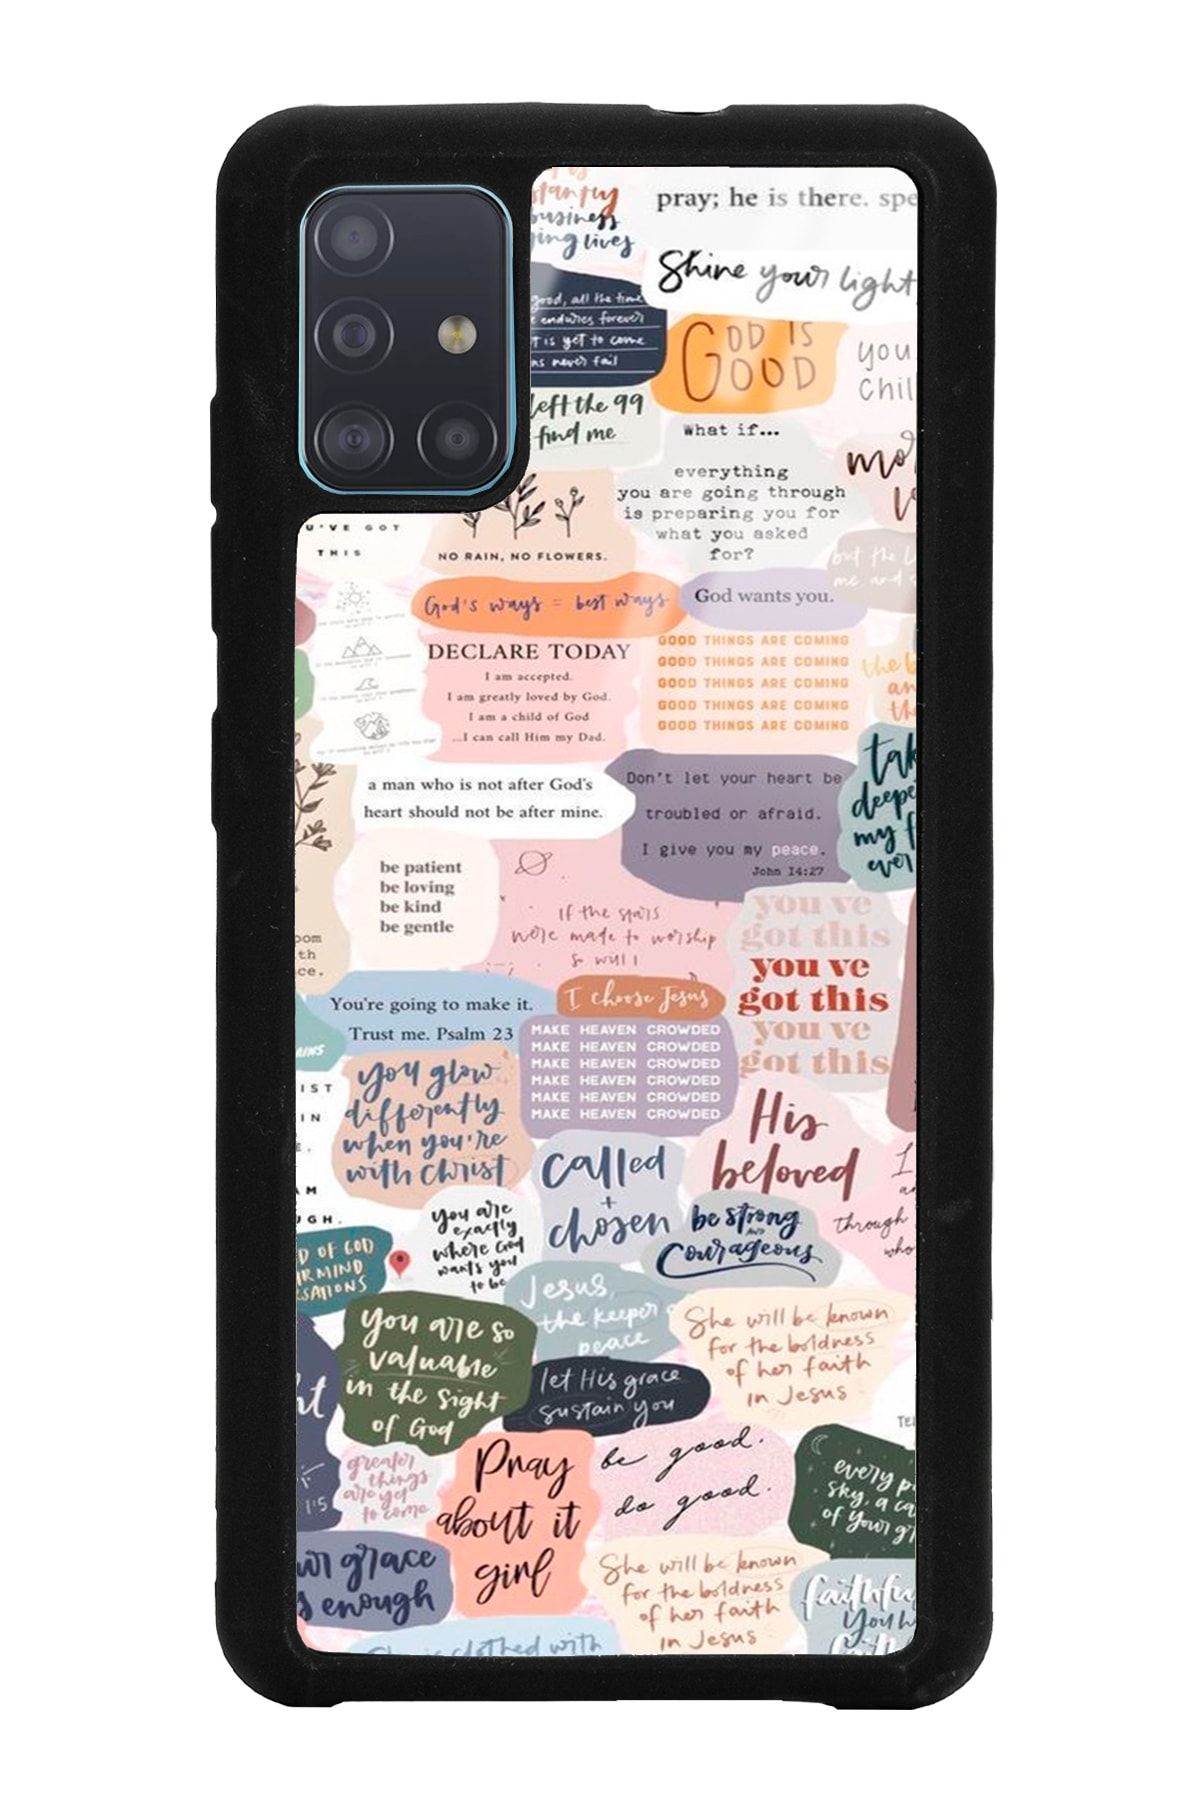 business
lives
pray; he is there.
Shine your light
good, all the time
endures forever
is yet to come
never fail
GOD IS
GOOD
you
left the 99
find me
What if...
everything
you are going through
is preparing you for
what you asked
for?
GOT
THIS
NO RAIN, NO FLOWERS.
but the
me and
God's ways = best ways
God wants you.
DECLARE TODAY
I am accepted.
I am greatly loved by God.
I am a child of God
...I can call Him my Dad.
GOOD THINGS ARE COMING
GOOD THINGS ARE COMING
GOOD THINGS ARE COMING
GOOD THINGS ARE COMING
GOOD THINGS ARE COMING
the
a man who is not after God's
heart should not be after mine.
Don't let your heart be
troubled or afraid.
I give you my peace.
John 14:27
my
be patient
be loving
be kind
be gentle
if the stars
were made to worship
so will I
you've
got this
you've
got this
you've
got this
You're going to make it.
Trust me. Psalm 23
I choose Jesus
MAKE HEAVEN CROWDED
MAKE HEAVEN CROWDED
MAKE HEAVEN CROWDED
MAKE HEAVEN CROWDED
MAKE HEAVEN CROWDED
MAKE HEAVEN CROWDED
you glow
differently
when you're
with Christ
called
+
chosen
His
beloved
through
you are
exactly
where God
wants you
to be
be strong
AND
Courageous
OF GOD
MIND
Jesus,
the keeper of
peace
She will be known
for the boldness
of her faith
in Jesus
you are so
valuable
in the sight
of God
let His grace
sustain you
greater
things
are yet
to come
1:5
Pray
about it
girl
be good.
do good.
every
sky, a
of your
grace
enough
She will be known
for the boldness
of her faith
in Jesus
You
She is clothed with